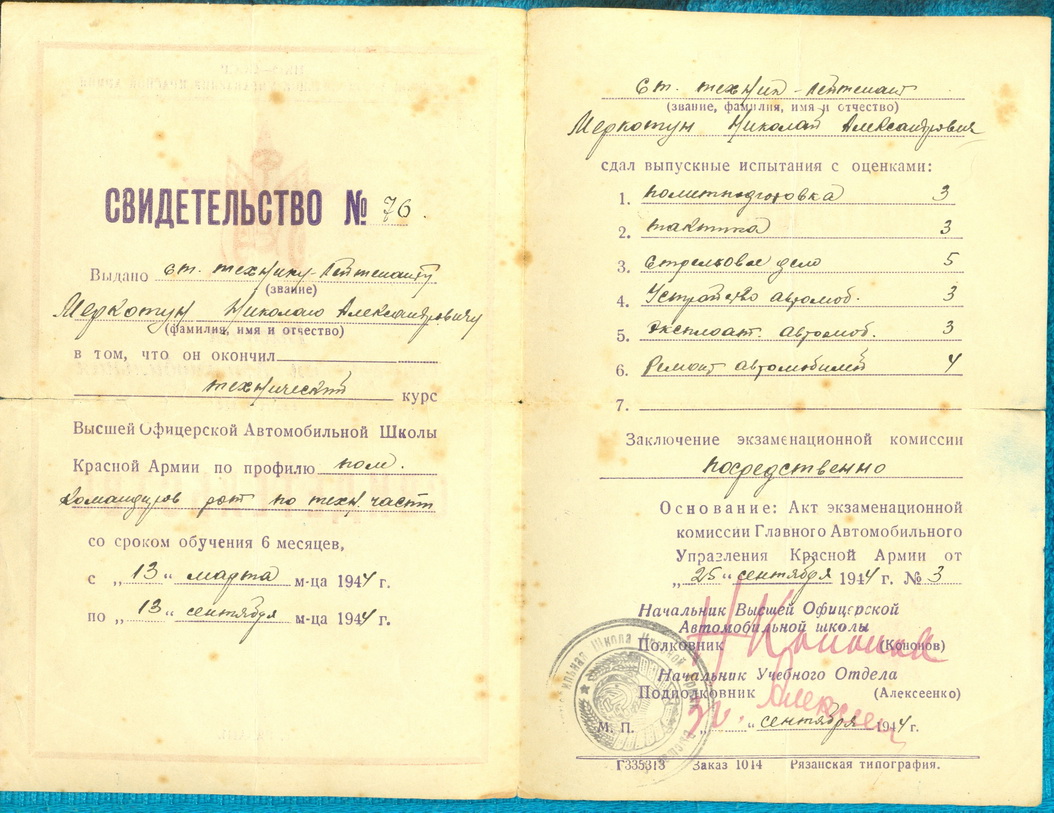 СВИДЕТЕЛЬСТВО № 76.
Выдано ст. технику-лейтенанту
(звание)
Меркотун Николаю Александровичу
(фамилия, имя и отчество)
в том, что он окончил
технический курс
Высшей Офицерской Автомобильной Школы
Красной Армии по профилю пом.
командиров рот по техн. части
со сроком обучения 6 месяцев,
с „13“ марта м-ца 1944 г.
по „13“ сентября м-ца 1944 г.
ст. техник-лейтенант
(звание, фамилия, имя и отчество)
Меркотун Николай Александрович
сдал выпускные испытания с оценками:
1. политподготовка 3
2. тактика 3
3. Стрелковое дело 5
4. Устройство автомоб. 3
5. Эксплоат. автомоб. 3
6. Ремонт автомобилей 4
7.
Заключение экзаменационной комиссии
посредственно
Основание: Акт экзаменационной
комиссии Главного Автомобильного
Управления Красной Армии от
„25“ сентября 1944 г. № 3
Начальник Высшей Офицерской
Автомобильной школы
Полковник (Кононов)
Начальник Учебного Отдела
Подполковник (Алексеенко)
М. П. „ “ сентября 1944 г.
Г335313 Заказ 1014 Рязанская типография.